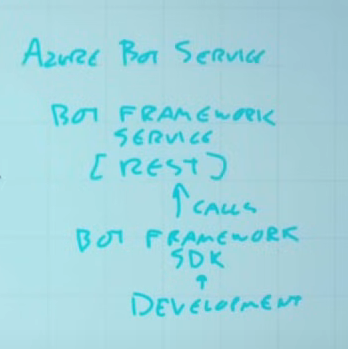 AZURE BOT SERVICE
BOT FRAMEWORK
SERVICE
[REST]
↑ CALLS
BOT FRAMEWORK
SDK
↑
DEVELOPMENT